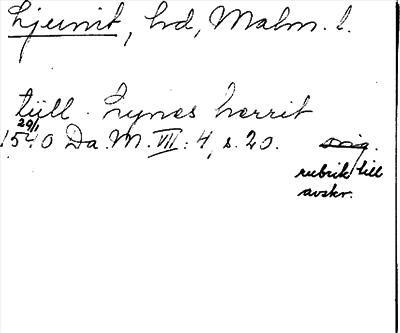 Ljunit, hd, Malm. l.
till Lynes herrit
29/1
1540 Da. M. VII: 4, s. 20. orig.
rubrik till
avskr.